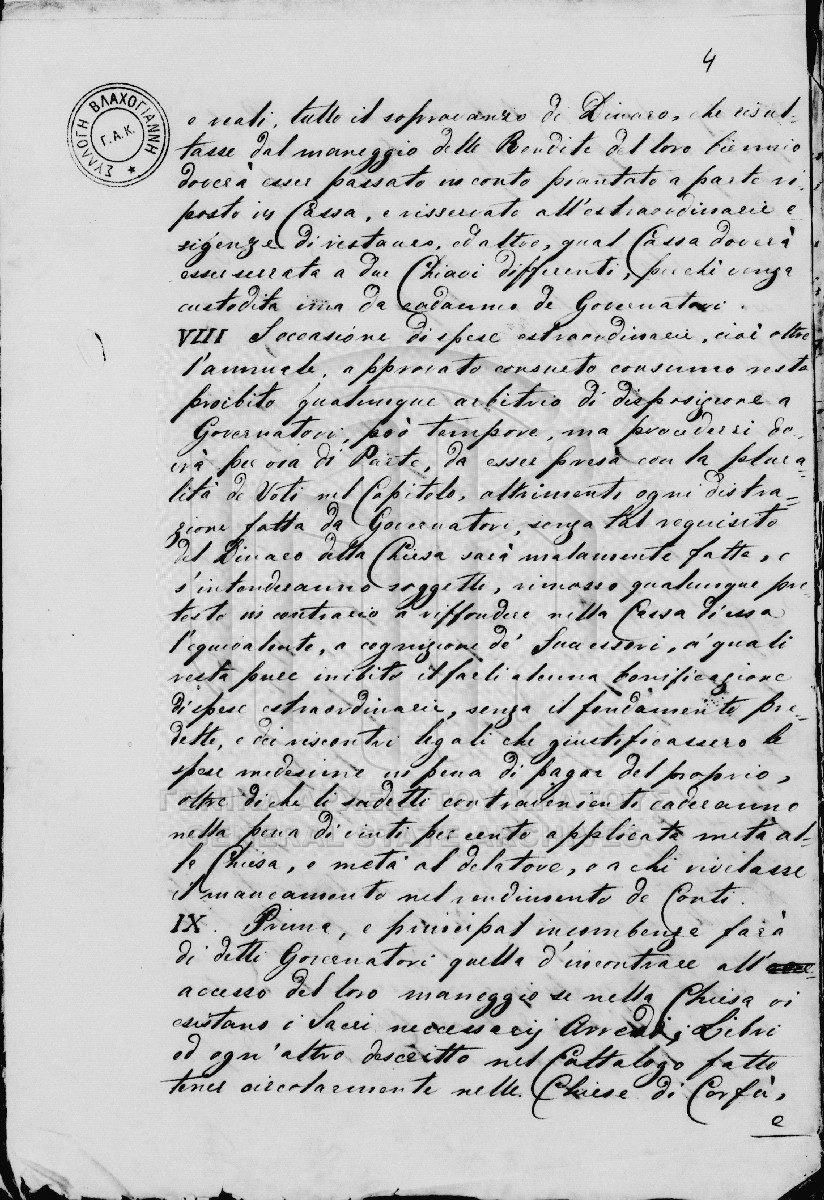 4
ΣΥΛΛΟΓΗ ΒΛΑΧΟΓΙΑΝΝΗ
Γ.Α.Κ.
e reali, tutto il sopravanzo di Dinaro, che risul-
tasse dal maneggio delle Rendite del loro biennio
doverà esser passato in conto piantato a parte ri-
posto in Cassa, e risservato all'estraordinarie e-
sigenze di restauro, ed altro, qual Cassa doverà
esser serrata a due Chiavi differenti, perchè venga
custodita una da cadauno de Governatori.
VIII I occasione di spese estraordinarie, cioè oltre
l'annuale, approvato consueto consumo resta
proibito qualunque arbitrio di disposizione a
Governatori, prò tempore, ma procedersi do-
vrà per via di Parte, da esser presa con la plura-
lità de Voti nel Capitolo, altrimenti ogni distra-
zione fatta da Governatori, senza tal requisito
del Dinaro della Chiesa sarà malamente fatta, e
s'intenderanno soggetti, rimosso qualunque pre
testo in contrario a riffondere nella Cassa di essa
l'equivalente, a cognizione de' Successori, a' quali
resta pure inibito il farli alcuna bonificazione
di spese estraordinarie, senza il fondamento pre-
detto, e dei riscontri legali che giustificassero le
spese medesime in pena di pagar del proprio,
oltre di che li sudetti contravenienti caderanno
nella pena di vinti per cento applicata metà al-
la Chiesa, e metà al delatore, o a chi rivelasse
il mancamento nel rendimento de Conti.
IX. Prima, e principal incombenza sarà
di detti Governatori quella d'incontrare all'
accesso del loro maneggio se nella Chiesa vi
esistano i Sacri neccessarij Arredi, Libri
ed ogn'altro descritto nel Cattalogo fatto
tener circolarmente nelle Chiese di Corfù,
e